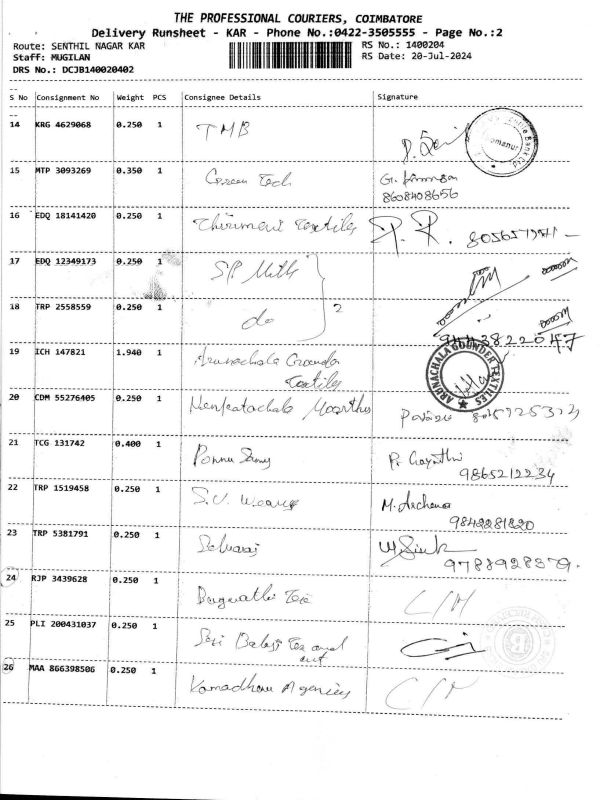 THE PROFESSIONAL COURIERS, COIMBATORE
Delivery Runsheet - KAR - Phone No.:0422-3505555 - Page No.:2
Route: SENTHIL NAGAR KAR
RS No.: 1400204
Staff: MUGILAN
RS Date: 20-Jul-2024
DRS No.: DCJB140020402
S No Consignment No Weight PCS Consignee Details Signature
14 KRG 4629068 0.250 1 TMB
15 MTP 3093269 0.350 1 Green Tech
8608408656
16 EDQ 18141420 0.250 1 Textiles
17 EDQ 12349173 0.250 1 S.P. Mills
2
18 TRP 2558559 0.250 1 do
9443822047
19 ICH 147821 1.940 1 Arunachala Gounder
Textiles
ARUNACHALA GOUNDER TEXTILES
20 CDM 55276405 0.250 1 Moorthy
21 TCG 131742 0.400 1 Ponnu Samy P. Gayathri
9865212234
22 TRP 1519458 0.250 1 S.V. M. Archana
9842281820
23 TRP 5381791 0.250 1 Selvaraj
9788928379.
24 RJP 3439628 0.250 1 Tex
25 PLI 200431037 0.250 1 Sri Balaji Tex
26 MAA 866398506 0.250 1 Kamadhenu Agencies